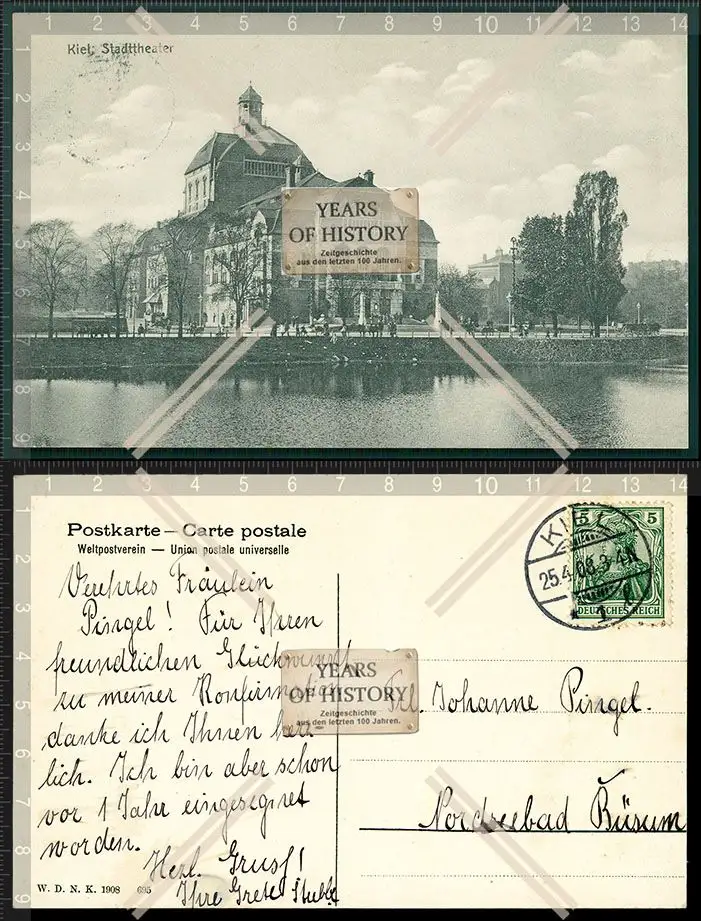 1 2 3 4 5 6 7 8 9 10 11 12 13 14
Kiel: Stadttheater
YEARS
OF HISTORY
Zeitgeschichte
aus den letzten 100 Jahren.
1 2 3 4 5 6 7 8 9 10 11 12 13 14
Postkarte – Carte postale
Weltpostverein — Union postale universelle
Verehrtes Fräulein
Pingel! Für Ihren
freundlichen Glückwunsch
zu meiner Konfirmation
danke ich Ihnen herz-
lich. Ich bin aber schon
vor 1 Jahr eingesegnet
worden.
Herzl. Gruß!
Ihre Grete
W. D. N. K. 1908 695
KIEL
25.4.08.3-4N
1
5 5
DEUTSCHES REICH
YEARS
OF HISTORY
Zeitgeschichte
aus den letzten 100 Jahren.
Frl. Johanne Pingel.
Nordseebad Büsum